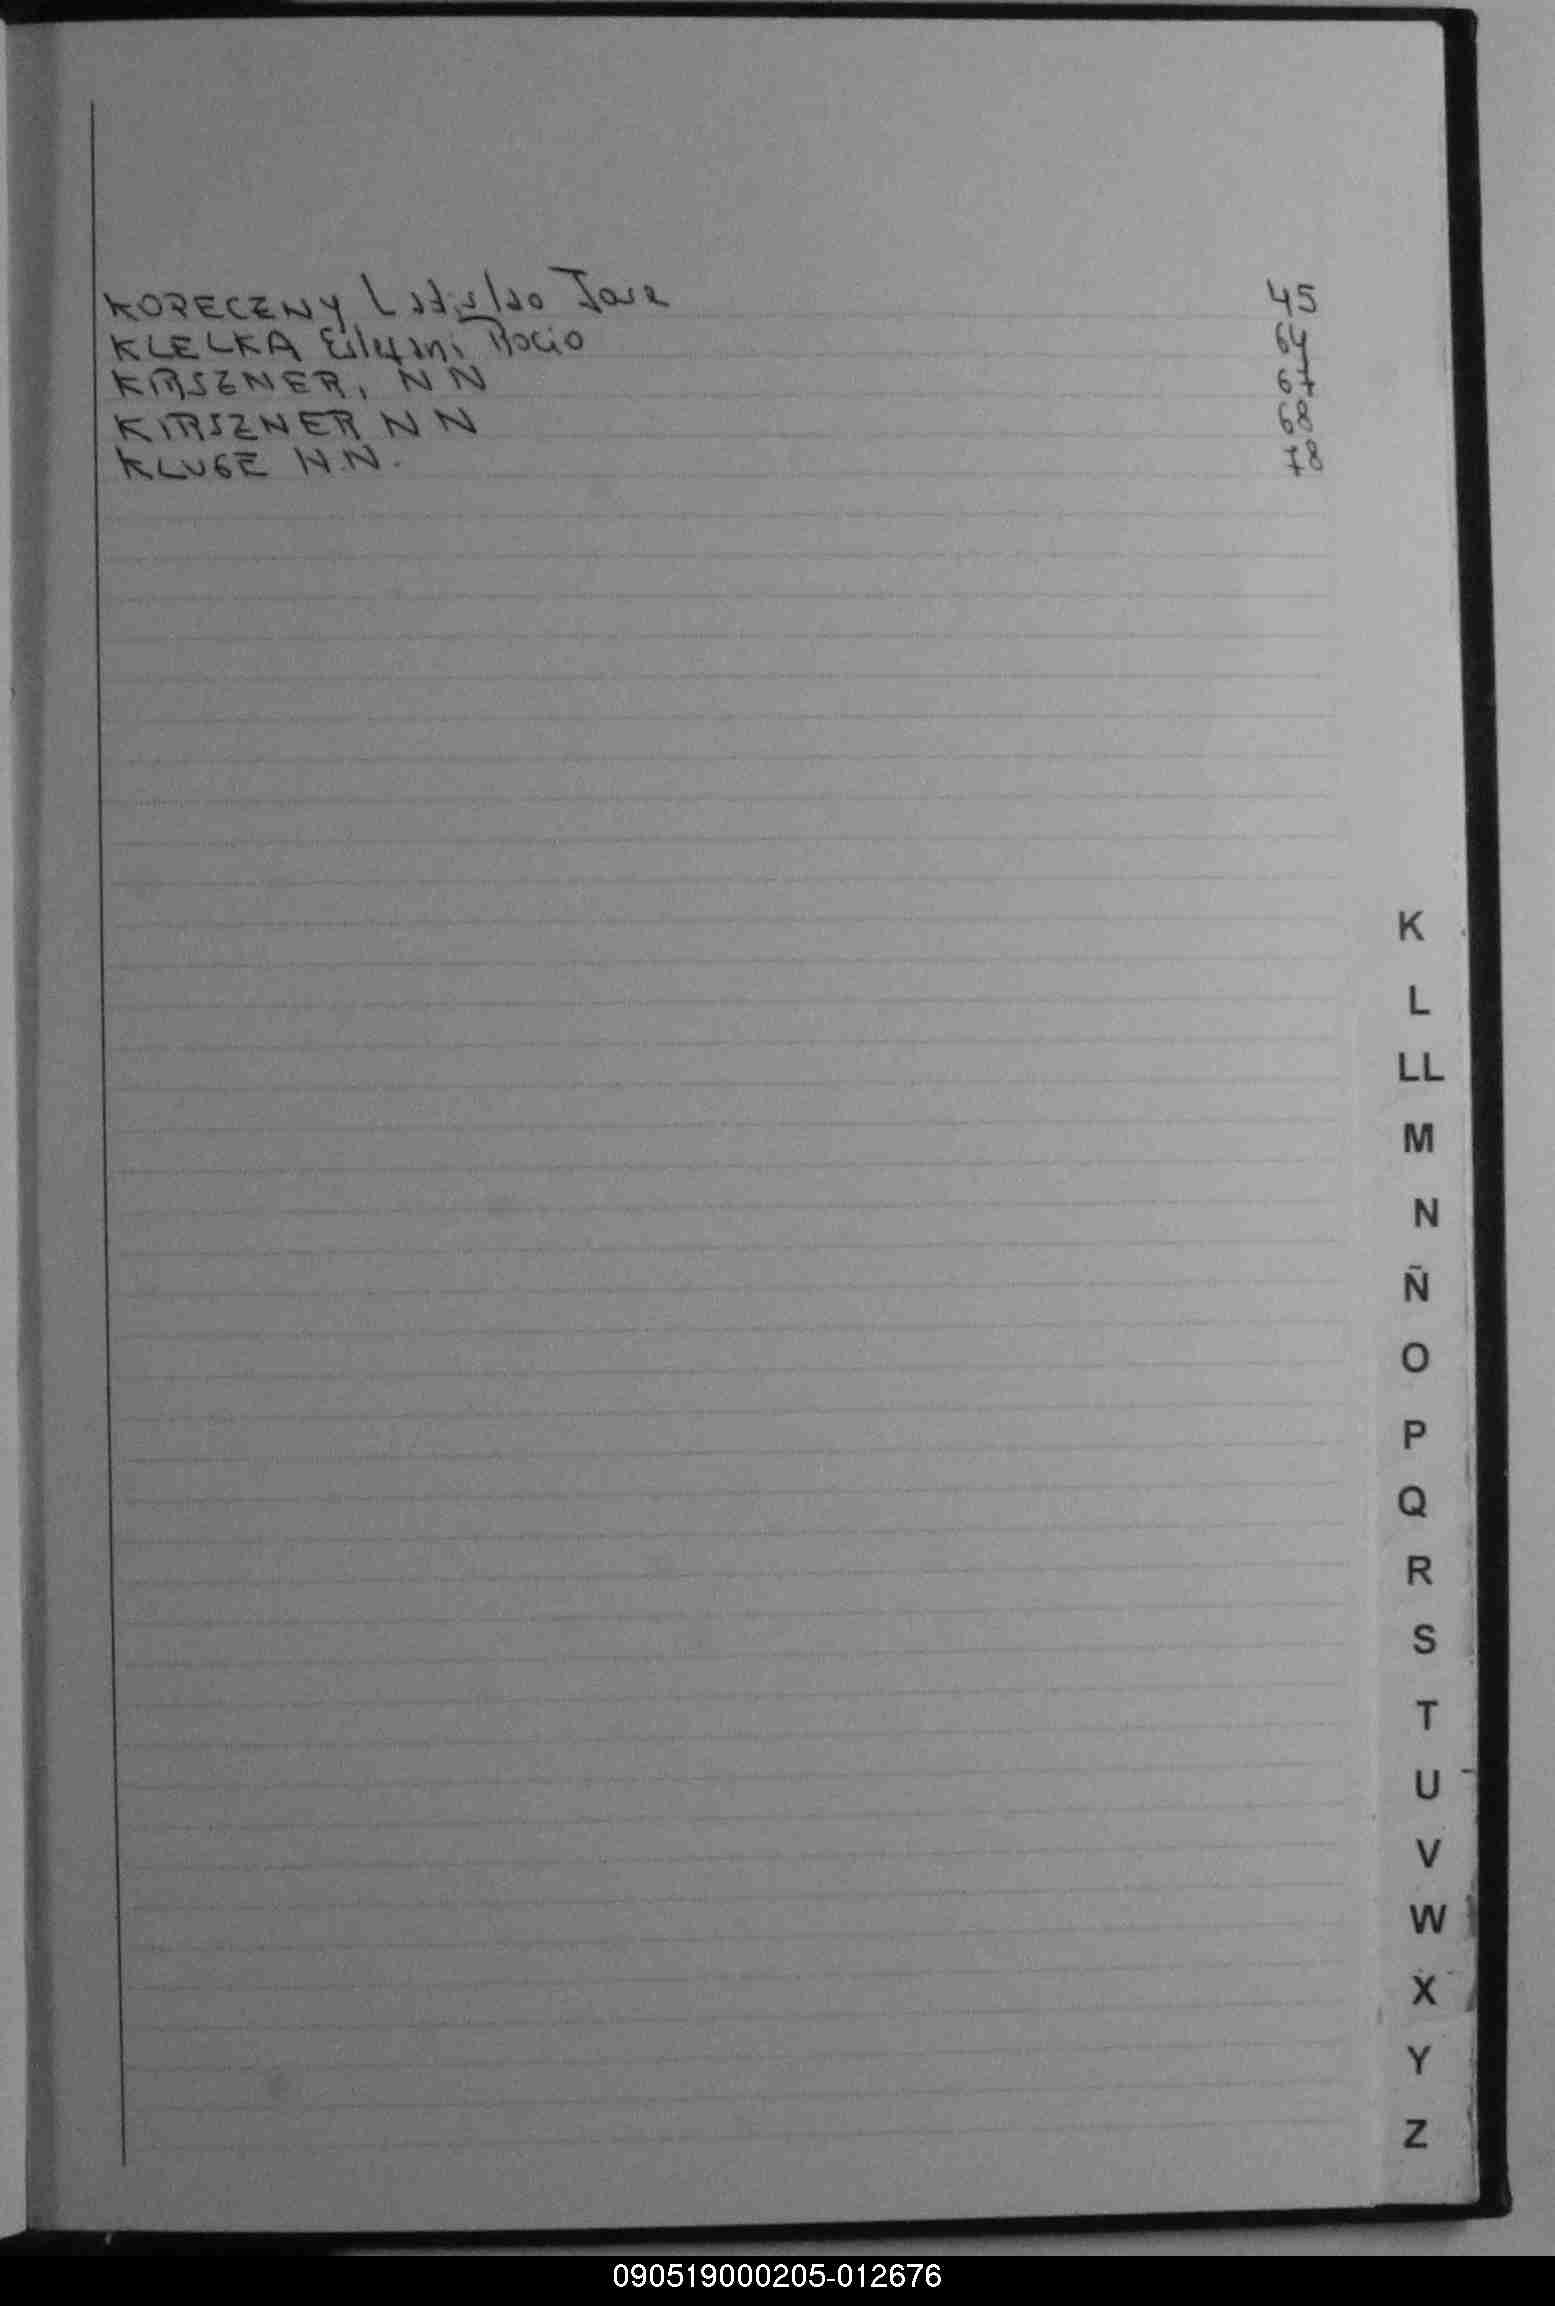 KOPECZNY Ladislao Jose 45
KLELKA Estefani Rocio 64
KIRSZNER, NN 67
KIRSZNER NN 68
KLUGE N.N. 78
K
L
LL
M
N
Ñ
O
P
Q
R
S
T
U
V
W
X
Y
Z
090519000205-012676